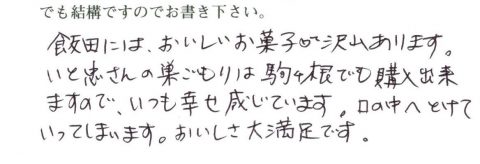 でも結構ですのでお書き下さい。
飯田には、おいしいお菓子が沢山あります。
いと忠さんの巣ごもりは駒ヶ根でも購入出来
ますので、いつも幸せ感じています。口の中へとけて
いってしまいます。おいしさ大満足です。